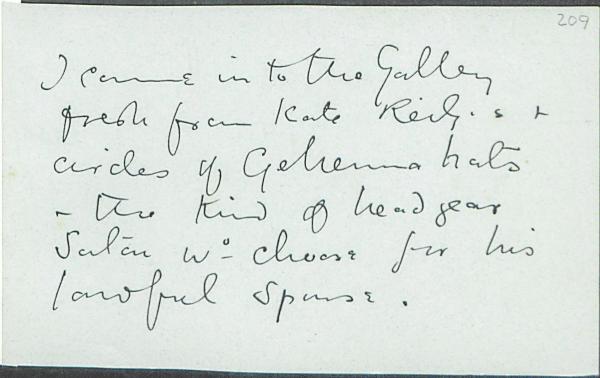 209
I came in to the Gallery
fresh from Kate Reily's &
circles of Gehenna hats
& the kind of headgear
Satan wd choose for his
lawful spouse.